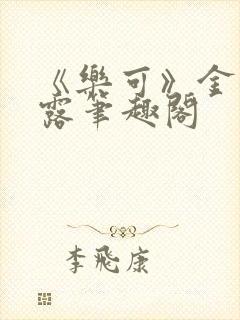 《樂可》金
露筆趣閣
李飛康